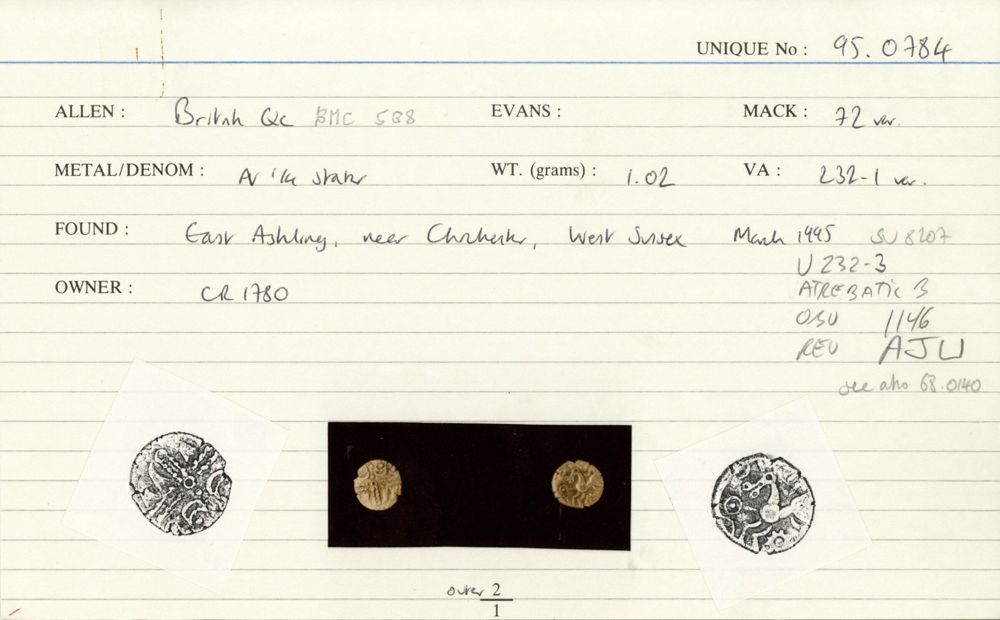 UNIQUE No : 95. 0784
ALLEN : British Qc BMC 588 EVANS : MACK : 72 var.
METAL/DENOM : AV 1/4 stater WT. (grams) : 1.02 VA : 232-1 var.
FOUND : East Ashling, near Chichester, West Sussex March 1995 SU 8207
V 232-3
OWNER : CR 1780 ATREBATIC B
OBV 1146
REV AJW
see also 68.0140
2
1